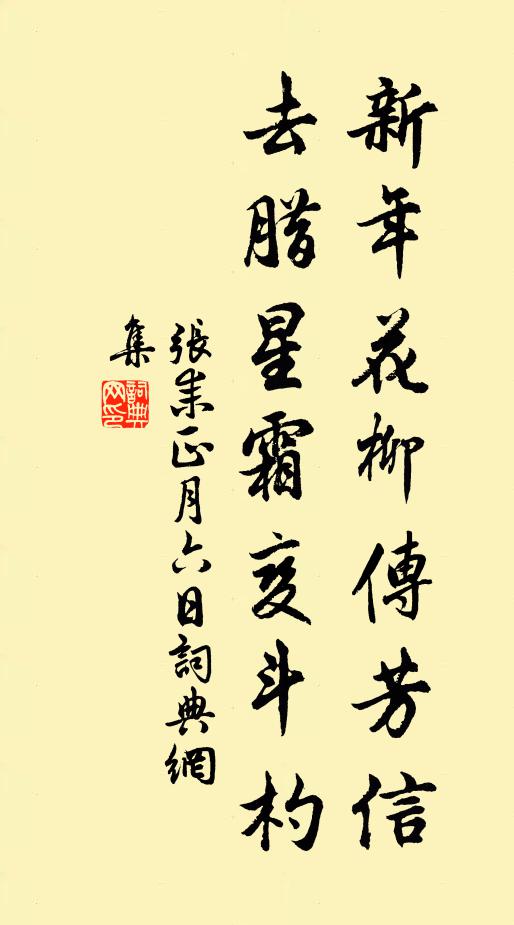 新年花柳傳芳信
去腊星霜变斗杓
張耒正月六日詞典網
集
詞典网印